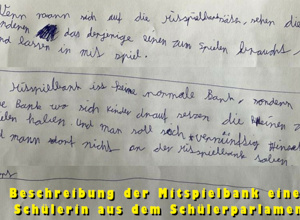 Wenn mann sich auf die Mitspielbank sitzt, sehen die
das derjenige einen zum spielen braucht
und lassen in mit spiel.
Mitspielbank ist keine normale Bank, sondern
e Bank wo sich Kinder drauf setzen die keinen z
elen haben. Und man soll sich vernünftig hinse
d mann darf nicht an der Mitspielbank
Beschreibung der Mitspielbank eine
Schülerin aus dem Schülerparlamen